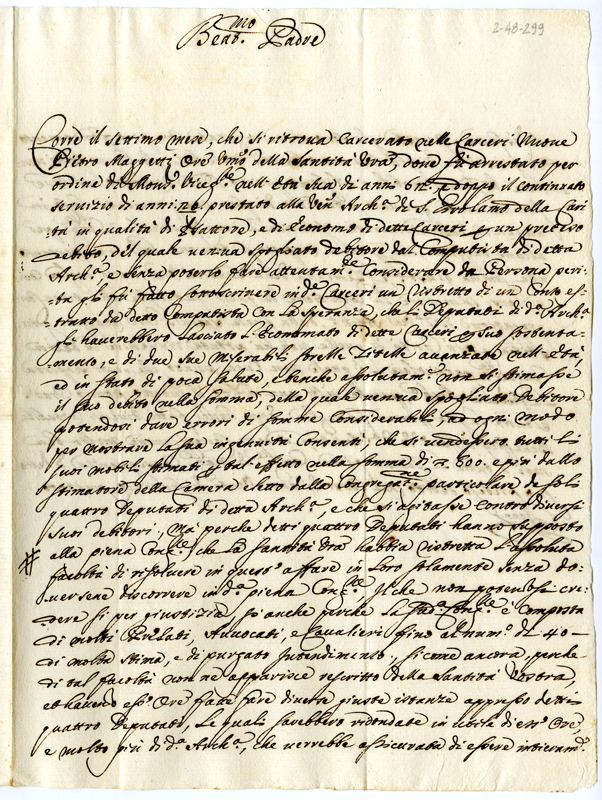 2-48-299
Beat.mo Padre
Corre il settimo mese, che si ritrova Carcerato nelle Carceri Nuove
Pietro Maggetti Ore Vmo della Santità Vra, dove fù adrestato per
ordine di Mons.r Viceg.te nell'Età sua di anni 61., e doppo il continuato
servizio di anni 26. prestato alla Ven: Arch.ta di S. Girolamo della Cari
=tà in qualità di Esattore, e di Economo di dette Carceri p. un preteso
debito, del quale veniva spogliato debitore dal Computista di detta
Arch.ta e senza poterlo fare attentam.te Considerare da Persona peri=
=ta gli fù fatto sottoscrivere in d.e Carceri un ristretto di un Conto es=
=tratto da detto Computista con la speranza, che li Deputati di d.a Arch.ta
gli haverebbero lasciato l'Economato di dette Carceri p. suo sostenta=
=mento, e di due sue miserabili sorelle Zitelle avanzate nell'Età
ed in stato di poca salute, e benche assolutam.te non si stimasse
il suo debito nella somma, della quale veniva spogliato Debitore
potendosi dare errori di somme Considerabili, ad ogni modo
per mostrare la sua ingenuità Consentì, che si vendessero tutti li
suoi mobili stimati p. tal effetto nella somma di 800. e più dallo
stimatore della Camera eletto dalla Congregat.ne particolare de soli
quattro Deputati di detta Arch.ta, e che si agitasse contro diversi
suoi debitori, Ma perche detti quattro Deputati hanno supposto
# alla piena Cong.ne che la Santità Vra habbia ristretta l'assoluta
facoltà di risolvere in questo affare in loro solamente senza do=
=versene discorrere in d.a piena Cong.ne Il che non potendosi cre=
dere si per giustizia, si anche perche la sud.a Cong.ne è composta
di molti Prelati, Avvocati, e Cavalieri sino al num.o di 40 —
di molta stima, e di purgato intendimento, si come ancora, perche
di tal facoltà non ne apparisce rescritto della Santità Vostra,
et havendo esso Ore fatte fare diverse giuste istanze appresso detti
quattro Deputati, le quali sarebbero ridondate in utile di esso Ore,
e molto più di d.a Arch.ta, che verrebbe assicurata di essere intieram.te